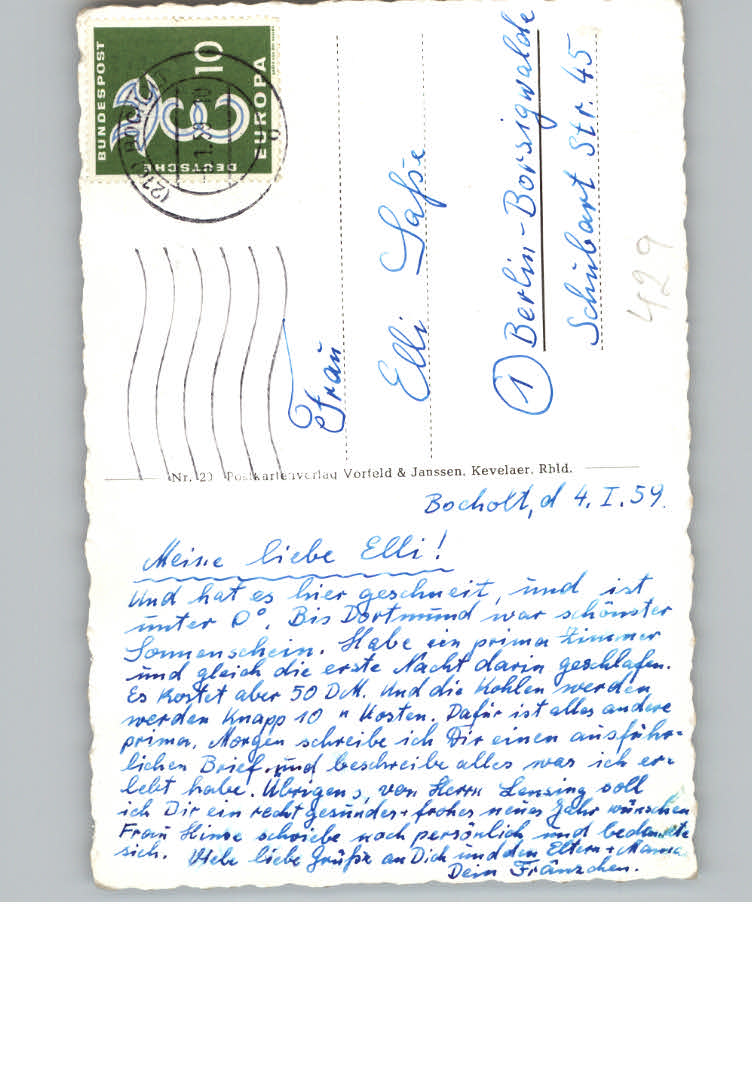 DEUTSCHE
BUNDESPOST
EUROPA
10
Frau
Elli
Berlin-Borsigwalde
Schubart Str. 45
(1)
429
Nr. 20 Postkartenverlag Vorfeld & Janssen, Kevelaer, Rhld.
Bocholt, d 4. I. 59.
Meine liebe Elli!
Und hat es hier geschneit, und ist
unter 0°. Bis Dortmund war schönster
Sonnenschein. Habe ein prima Zimmer
und gleich die erste Nacht darin geschlafen.
Es kostet aber 50 DM. Und die Kohlen werden
werden knapp 10 " kosten. Dafür ist alles andere
prima. Morgen schreibe ich Dir einen ausführ-
lichen Brief und beschreibe alles was ich er-
lebt habe. Übrigens, von Herrn Lensing soll
ich Dir ein recht gesundes + frohes neues Jahr wünschen
Frau schriebe noch persönlich und bedankte
sich. Viele liebe Grüße an Dich und den Eltern + Mama
Dein Fränzchen.